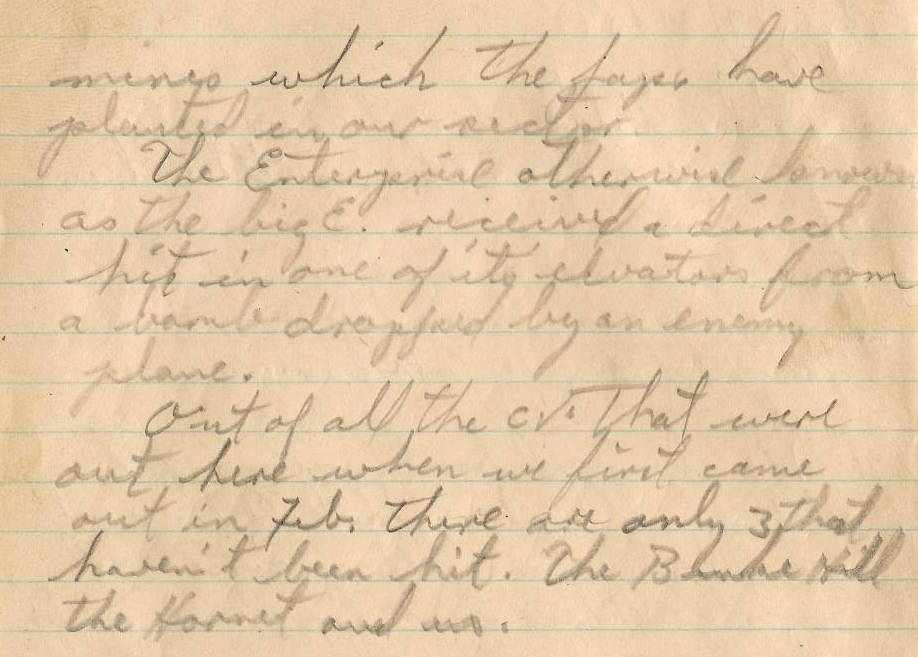 mines which the Japs have
planted in our sector.
The Enterprise otherwise known
as the big E. received a direct
hit in one of its elvators from
a bomb dropped by an enemy
plane.
Out of all the CVs that were
out here when we first came
out in Feb. there are only 3 that
haven't been hit. The Bunker Hill
the Hornet and us.